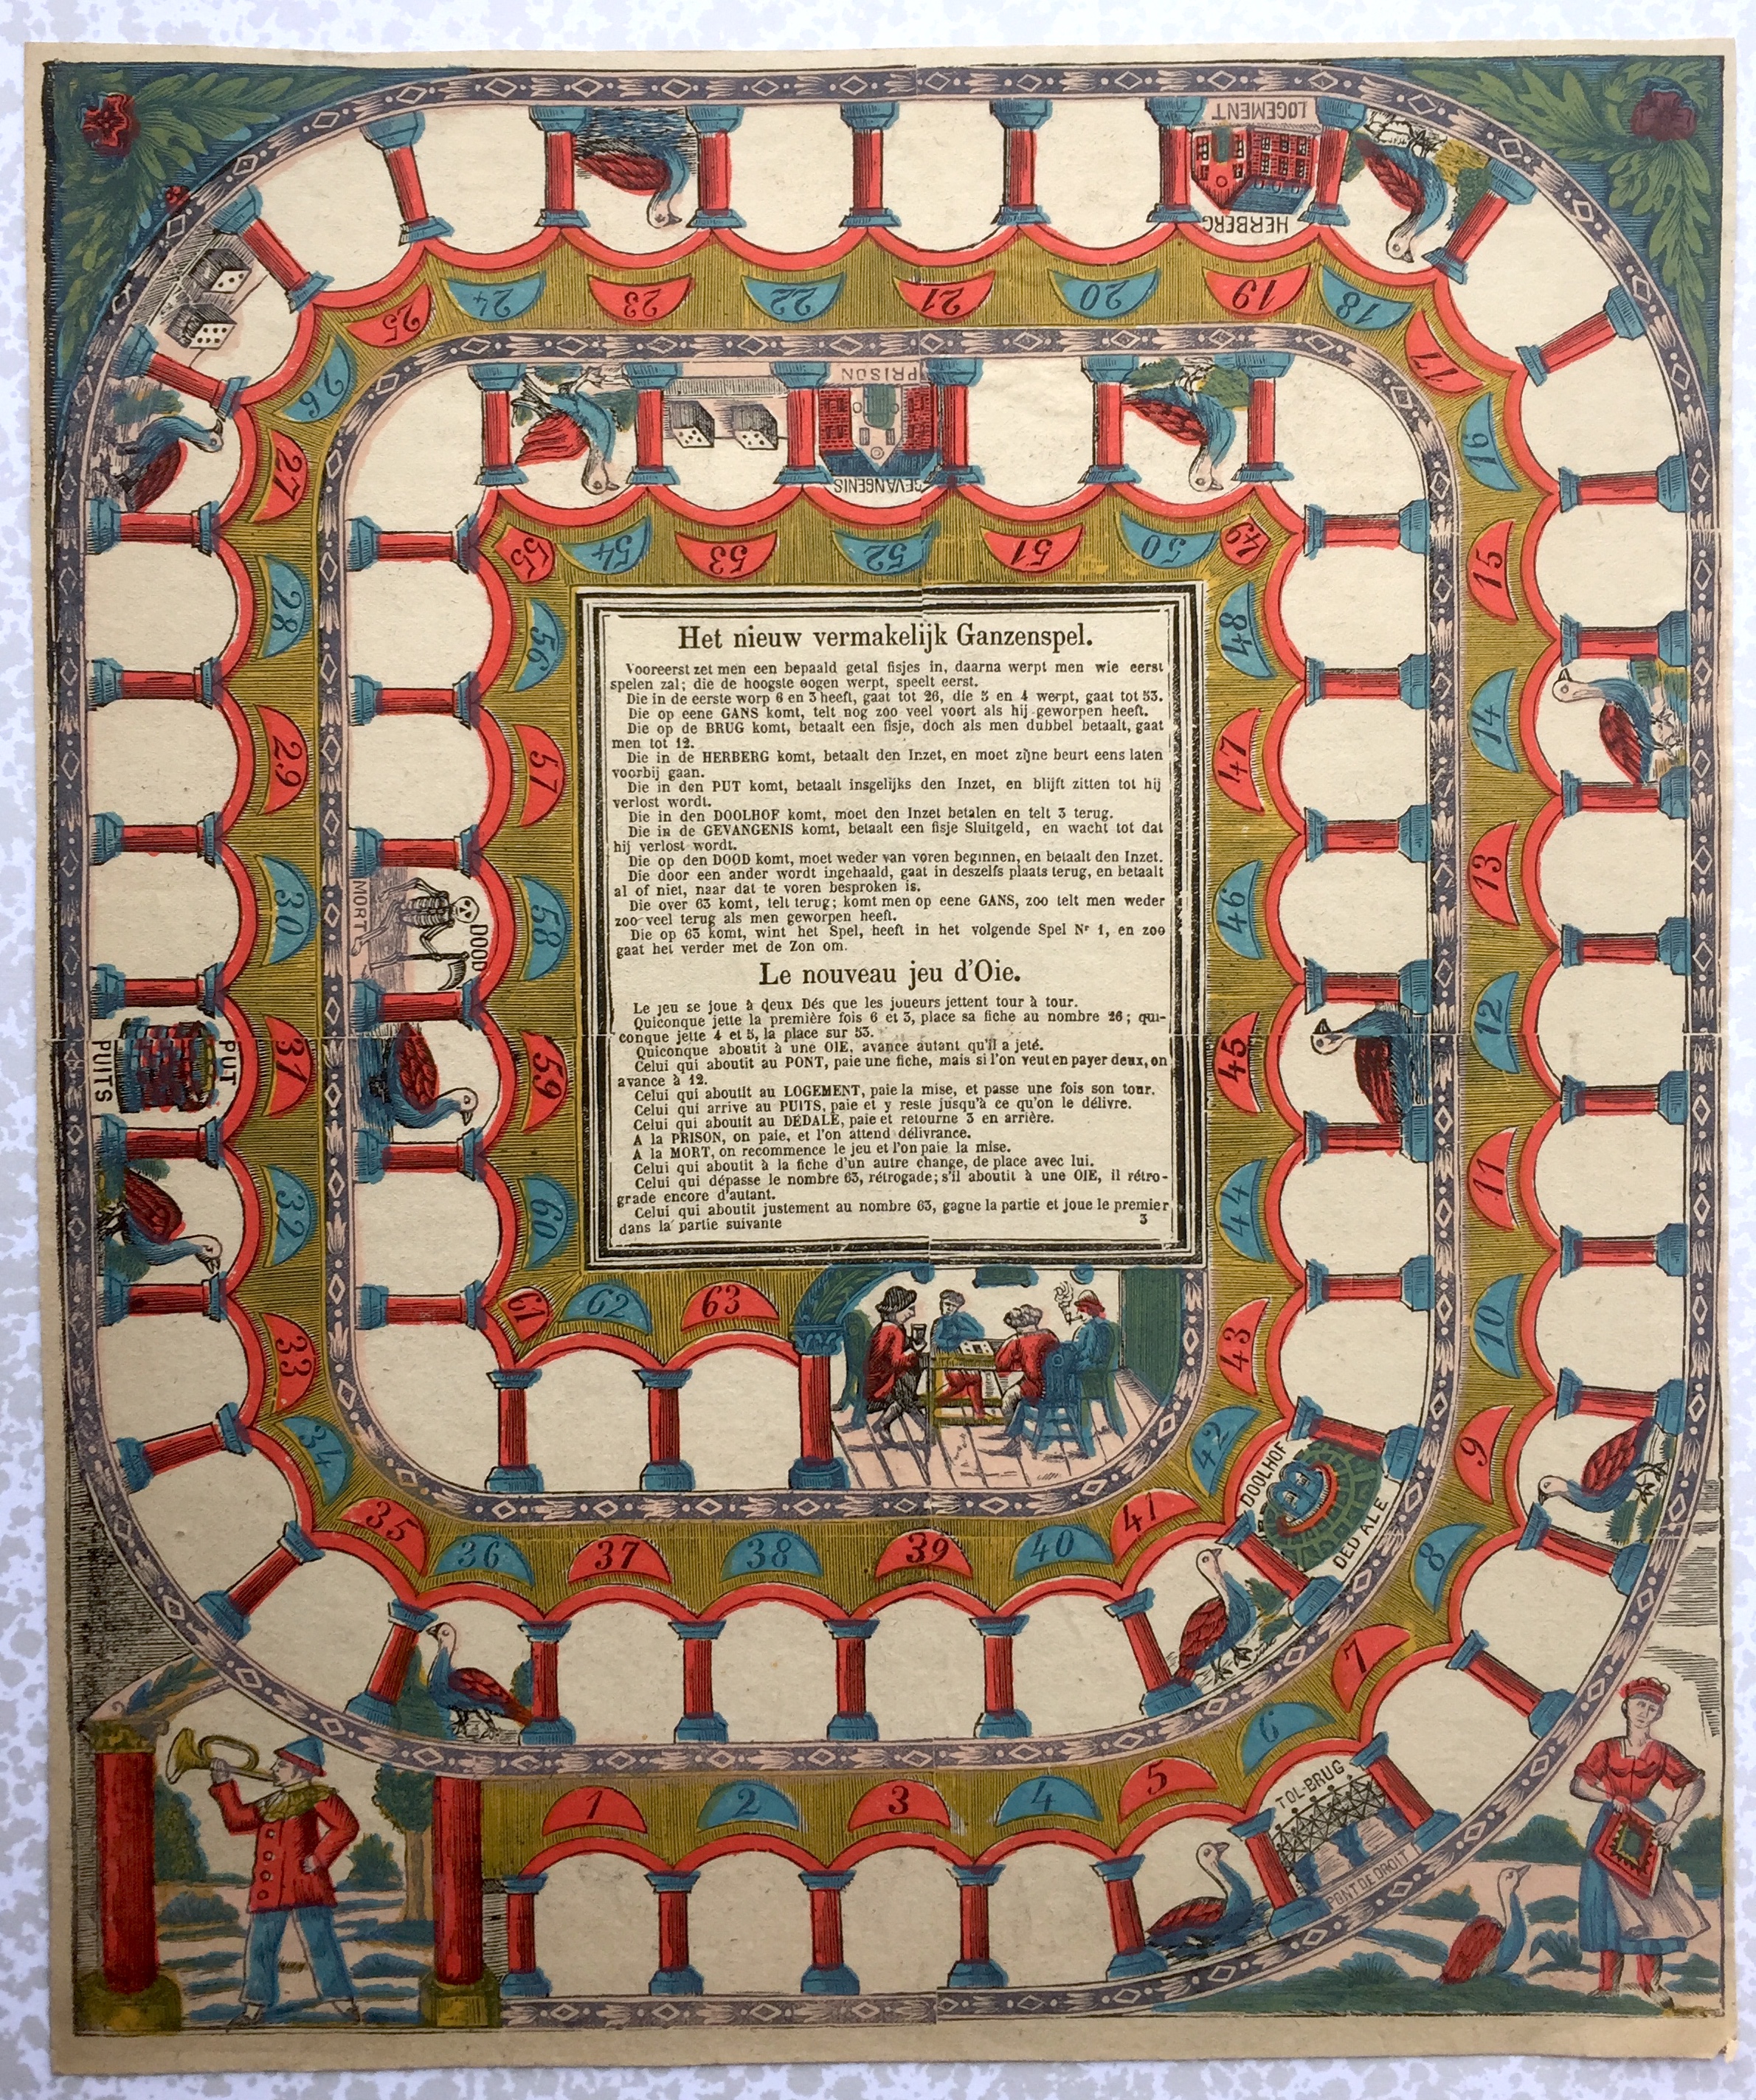 Het nieuw vermakelijk Ganzenspel.
Vooreerst zet men een bepaald getal fisjes in, daarna werpt men wie eerst
spelen zal; die de hoogste oogen werpt, speelt eerst.
Die in de eerste worp 6 en 3 heeft, gaat tot 26, die 5 en 4 werpt, gaat tot 53.
Die op eene GANS komt, telt nog zoo veel voort als hij geworpen heeft.
Die op de BRUG komt, betaalt een fisje, doch als men dubbel betaalt, gaat
men tot 12.
Die in de HERBERG komt, betaalt den Inzet, en moet zijne beurt eens laten
voorbij gaan.
Die in den PUT komt, betaalt insgelijks den Inzet, en blijft zitten tot hij
verlost wordt.
Die in den DOOLHOF komt, moet den Inzet betalen en telt 3 terug.
Die in de GEVANGENIS komt, betaalt een fisje Sluitgeld, en wacht tot dat
hij verlost wordt.
Die op den DOOD komt, moet weder van voren beginnen, en betaalt den Inzet.
Die door een ander wordt ingehaald, gaat in deszelfs plaats terug, en betaalt
al of niet, naar dat te voren besproken is.
Die over 63 komt, telt terug; komt men op eene GANS, zoo telt men weder
zoo veel terug als men geworpen heeft.
Die op 63 komt, wint het Spel, heeft in het volgende Spel Nr 1, en zoo
gaat het verder met de Zon om.
Le nouveau jeu d'Oie.
Le jeu se joue à deux Dés que les joueurs jettent tour à tour.
Quiconque jette la première fois 6 et 3, place sa fiche au nombre 26; qui-
conque jette 4 et 5, la place sur 53.
Quiconque aboutit à une OIE, avance autant qu'il a jeté.
Celui qui aboutit au PONT, paie une fiche, mais si l'on veut en payer deux, on
avance à 12.
Celui qui aboutit au LOGEMENT, paie la mise, et passe une fois son tour.
Celui qui arrive au PUITS, paie et y reste jusqu'à ce qu'on le délivre.
Celui qui aboutit au DÉDALE, paie et retourne 3 en arrière.
A la PRISON, on paie, et l'on attend délivrance.
A la MORT, on recommence le jeu et l'on paie la mise.
Celui qui aboutit à la fiche d'un autre change, de place avec lui.
Celui qui dépasse le nombre 63, rétrogade; s'il aboutit à une OIE, il rétro-
grade encore d'autant.
Celui qui aboutit justement au nombre 63, gagne la partie et joue le premier
dans la partie suivante
3
1
2
3
4
5
6
TOL-BRUG
PONT DE DROIT
7
8
9
10
11
12
13
14
15
16
17
18
19
HERBERG
LOGEMENT
20
21
22
23
24
25
26
27
28
29
30
31
PUT
PUITS
32
33
34
35
36
37
38
39
40
41
42
DOOLHOF
DEDALE
43
44
45
46
47
48
49
50
51
52
GEVANGENIS
PRISON
53
54
55
56
57
58
DOOD
MORT
59
60
61
62
63